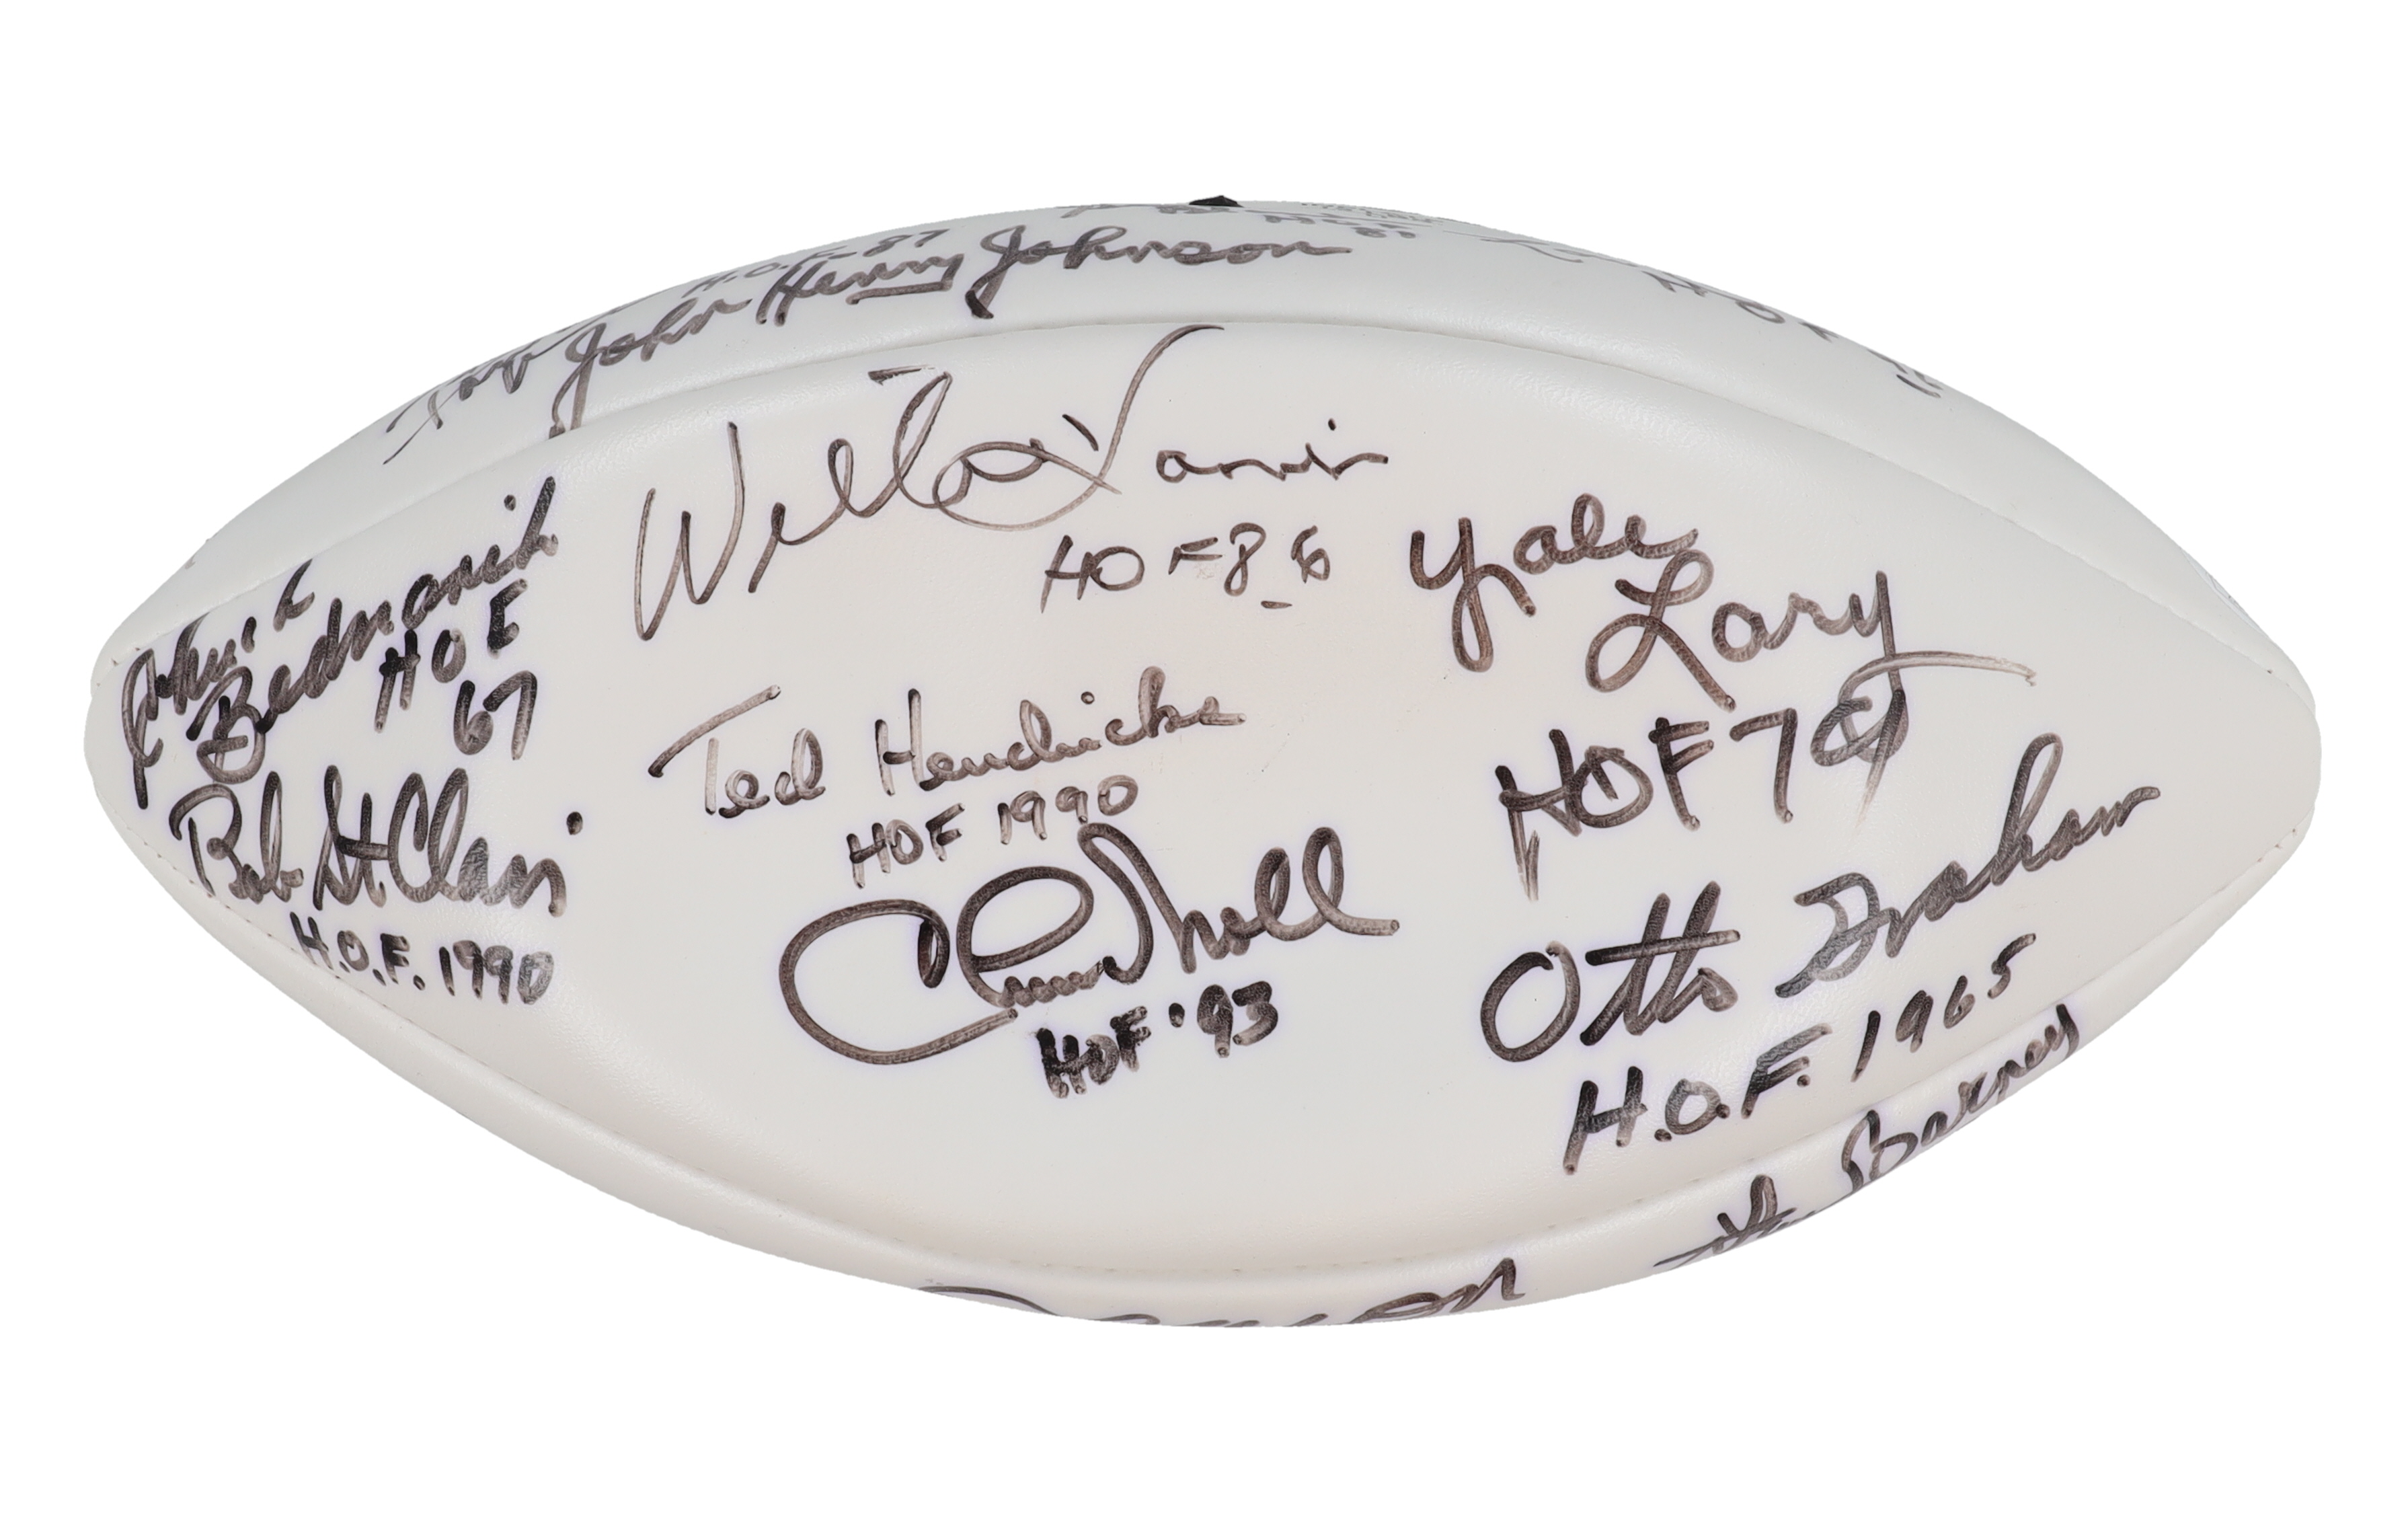 H.O.F. 87
John Henry Johnson
Willie Lanier
HOF 86
Yale
Lary
HOF 79
Chuck
Bednarik
HOF
67
Ted Hendricks
HOF 1990
Bob St. Clair
H.O.F. 1990
Chuck Noll
HOF '93
Otto Graham
H.O.F. 1965
Lem Barney